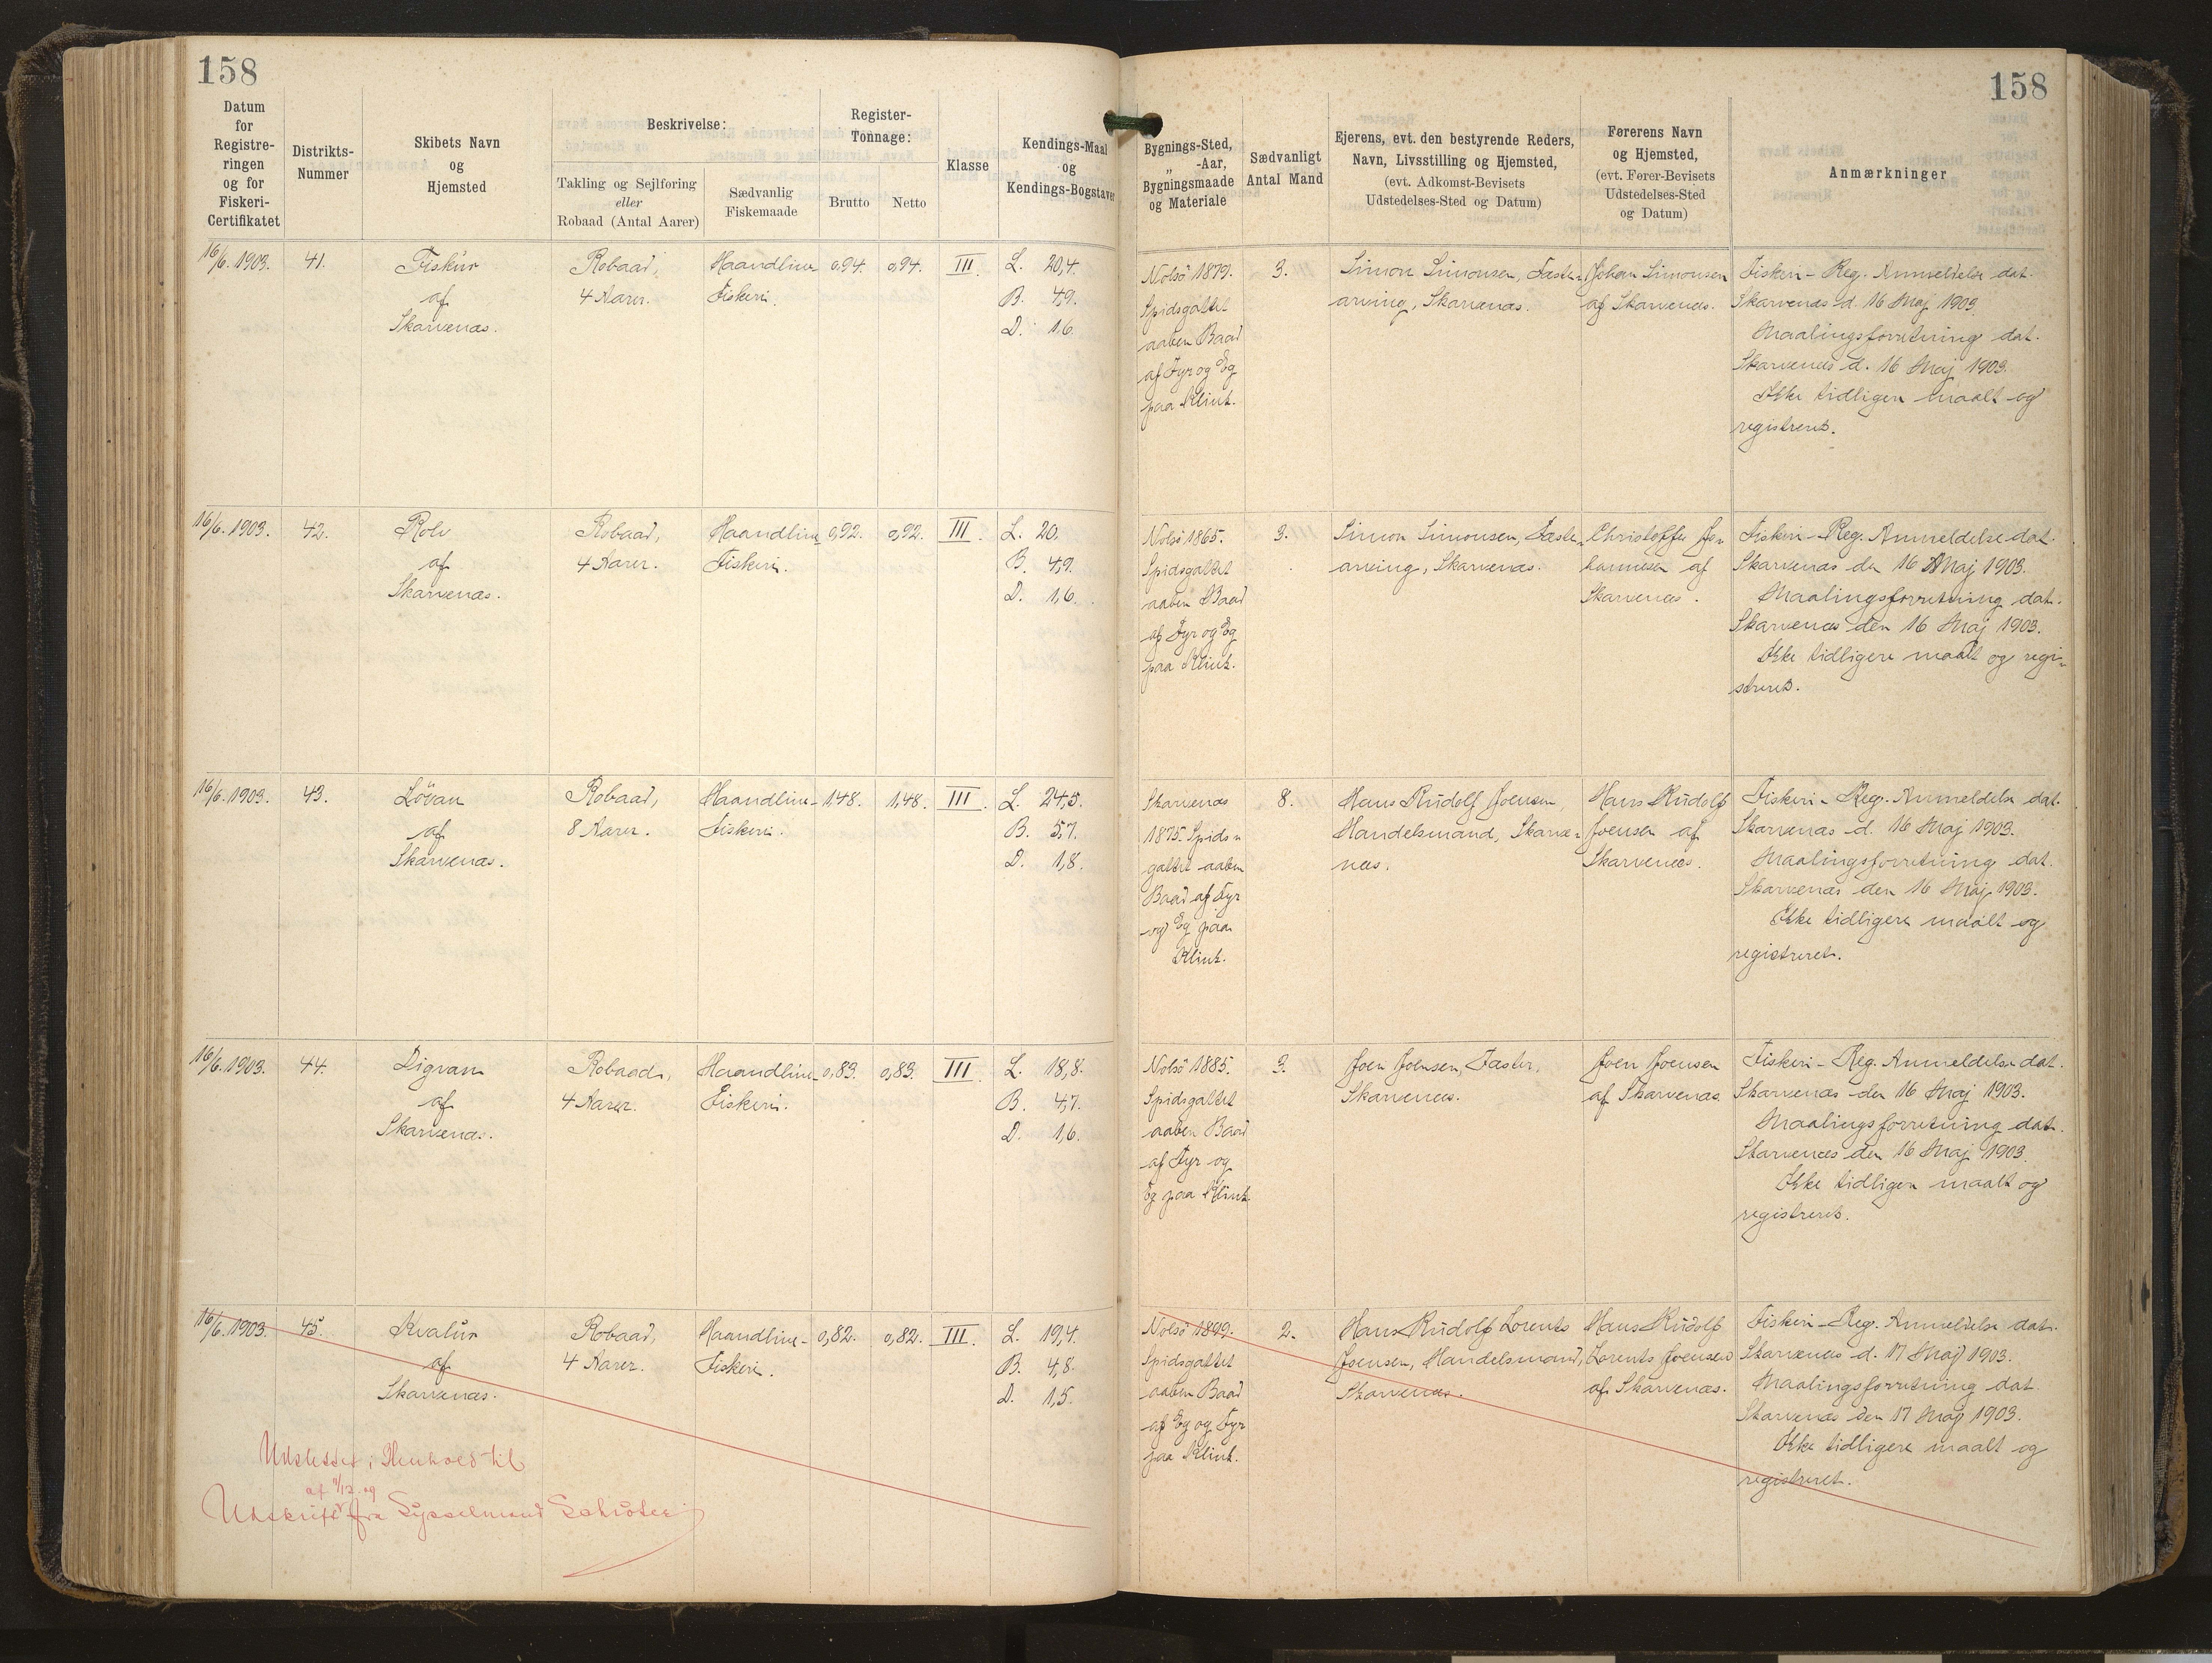 158
158
Datum
for
Registre-
ringen
og for
Fiskeri-
Certifikatet
Distrikts-
Nummer
Skibets Navn
og
Hjemsted
Beskrivelse:
Takling og Sejlføring
eller
Robaad (Antal Aarer)
Sædvanlig
Fiskemaade
Register-
Tonnage:
Brutto
Netto
Klasse
Kendings-Maal
og
Kendings-Bogstaver
Bygnings-Sted,
„ -Aar,
Bygningsmaade
og Materiale
Sædvanligt
Antal Mand
Ejerens, evt. den bestyrende Reders,
Navn, Livsstilling og Hjemsted,
(evt. Adkomst-Bevisets
Udstedelses-Sted og Datum)
Førerens Navn
og Hjemsted,
(evt. Fører-Bevisets
Udstedelses-Sted
og Datum)
Anmærkninger
16/6. 1903.
41.
Fiskur
af
Skarvenæs.
Robaad,
4 Aarer.
Haandline-
Fiskeri.
0,94.
0,94.
III.
L. 20,4.
B. 4,9.
D. 1,6.
Nolsö 1879.
Spidsgattet
aaben Baad
af Fyr og Eg
paa Klink.
3.
Simon Simonsen, Fæste-
arving, Skarvenæs.
Johan Simonsen
af Skarvenæs.
Fiskeri-Reg. Anmeldelse dat.
Skarvenæs d. 16 Maj 1903.
Maalingsforretning dat.
Skarvenæs d. 16 Maj 1903.
Ikke tidligere maalt og
registreret.
16/6. 1903.
42.
Rolv
af
Skarvenæs.
Robaad,
4 Aarer.
Haandline-
Fiskeri.
0,92.
0,92.
III.
L. 20.
B. 4,9.
D. 1,6.
Nolsö 1865.
Spidsgattet
aaben Baad
af Fyr og Eg
paa Klink.
3.
Simon Simonsen, Fæste-
arving, Skarvenæs.
Christoffer Jo-
hannesen af
Skarvenæs.
Fiskeri-Reg. Anmeldelse dat.
Skarvenæs den 16 Maj 1903.
Maalingsforretning dat.
Skarvenæs den 16 Maj 1903.
Ikke tidligere maalt og regi-
streret.
16/6. 1903.
43.
Lövan
af
Skarvenæs.
Robaad,
8 Aarer.
Haandline-
Fiskeri.
1,48.
1,48.
III.
L. 24,5.
B. 5,7.
D. 1,8.
Skarvenæs
1875. Spids-
gattet aaben
Baad af Fyr
og Eg paa
Klink.
8.
Hans Rudolf Joensen,
Handelsmand, Skarve-
næs.
Hans Rudolf
Joensen af
Skarvenæs.
Fiskeri-Reg. Anmeldelse dat.
Skarvenæs d. 16 Maj 1903.
Maalingsforretning dat.
Skarvenæs den 16 Maj 1903.
Ikke tidligere maalt og
registreret.
16/6. 1903.
44.
Digvam
af
Skarvenæs.
Robaad,
4 Aarer.
Haandline-
Fiskeri.
0,83.
0,83.
III.
L. 18,8.
B. 4,7.
D. 1,6.
Nolsö 1885.
Spidsgattet
aaben Baad
af Fyr og
Eg paa Klink
3.
Joen Joensen, Fæster,
Skarvenæs.
Joen Joensen
af Skarvenæs
Fiskeri-Reg. Anmeldelse dat.
Skarvenæs den 16 Maj 1903.
Maalingsforretning dat.
Skarvenæs den 16 Maj 1903.
Ikke tidligere maalt og
registreret.
16/6. 1903.
45.
Kvalur
af
Skarvenæs.
Robaad,
4 Aarer.
Haandline-
Fiskeri.
0,82.
0,82.
III.
L. 19,4.
B. 4,8.
D. 1,5.
Nolsö 1899.
Spidsgattet
aaben Baad
af Eg og Fyr
paa Klink.
2.
Hans Rudolf Lorents
Joensen, Handelsmand,
Skarvenæs.
Hans Rudolf
Lorents Joensen
af Skarvenæs.
Fiskeri-Reg. Anmeldelse dat.
Skarvenæs d. 17 Maj 1903.
Maalingsforretning dat.
Skarvenæs den 17 Maj 1903.
Ikke tidligere maalt og
registreret.
Udslettet i Henhold til
Udskrift fra Sysselmand Schröter